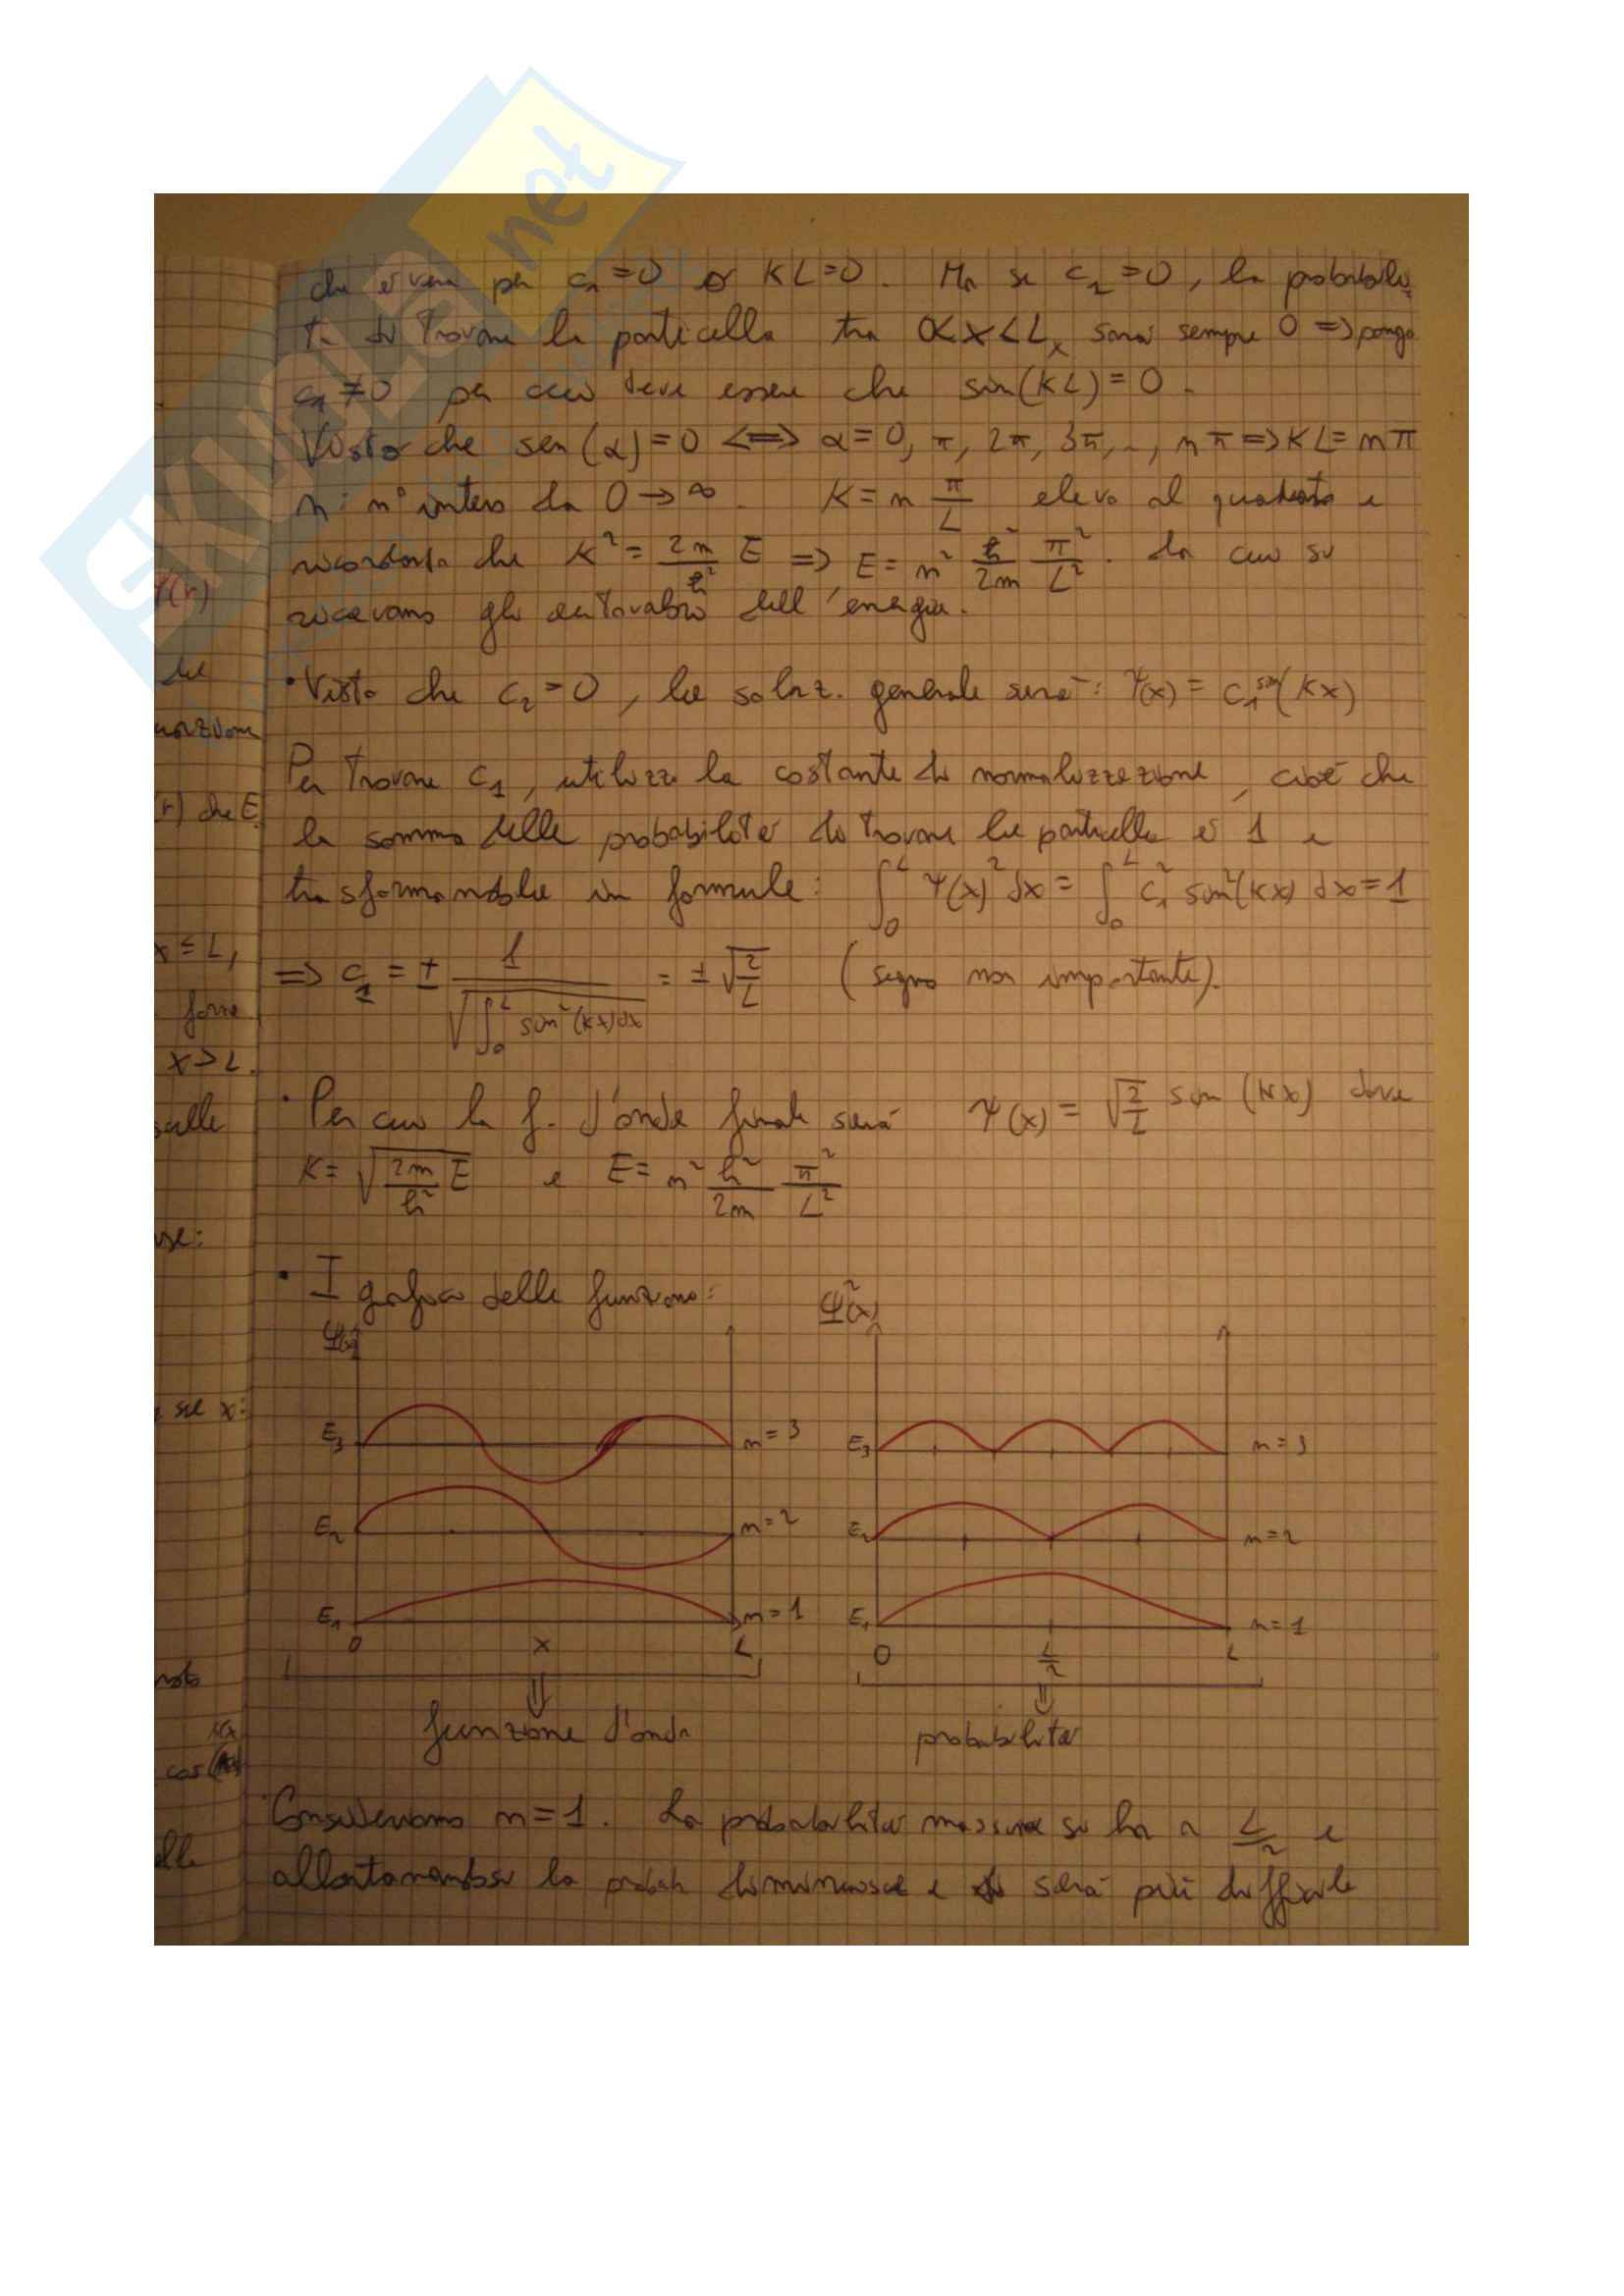 SKUOLA.net
che è vera per c₁=0 o KL=0. Ma se c₁=0, la probabili
tà di trovare la particella tra 0<x<Lₓ sarà sempre 0 => pongo
c₁≠0 per cui deve essere che sin(KL)=0.
Visto che sen(α)=0 <=> α=0, π, 2π, 3π, .., nπ => KL=nπ
n: n° intero da 0→∞. K=n π/L elevo al quadrato e
ricordando che K²= 2m/ħ² E => E= n² ħ²/2m π²/L². Da cui si
ricavano gli autovalori dell'energia.
• Visto che c₂=0, la soluz. generale sarà: Ψ(x) = c₁ sin(Kx)
Per trovare c₁, utilizzo la costante di normalizzazione, cioè che
la somma delle probabilità di trovare la particella è 1 e
trasformandola in formule: ∫₀ᴸ Ψ(x)² dx = ∫₀ᴸ c₁² sin²(Kx) dx = 1
=> c₁ = ± 1/√(∫₀ᴸ sin²(Kx)dx) = ± √(2/L) (segno non importante).
• Per cui la f. d'onda finale sarà Ψ(x) = √(2/L) sin (Kx) dove
K= √(2m/ħ² E) e E= n² ħ²/2m π²/L²
• I grafici delle funzioni:
Ψ(x)
E₃ n=3
E₂ n=2
E₁ n=1
0 x L
funzione d'onda
Ψ²(x)
E₃ n=3
E₂ n=2
E₁ n=1
0 L/2 L
probabilità
Consideriamo n=1. La probabilità massima si ha a L/2 e
allontanandosi la probab diminuisce e sarà più difficile
Ψ(r)
del
funzione
(r) che E
x≤L,
forze
x>L.
sulle
se:
se x:
noto
Kx
cos